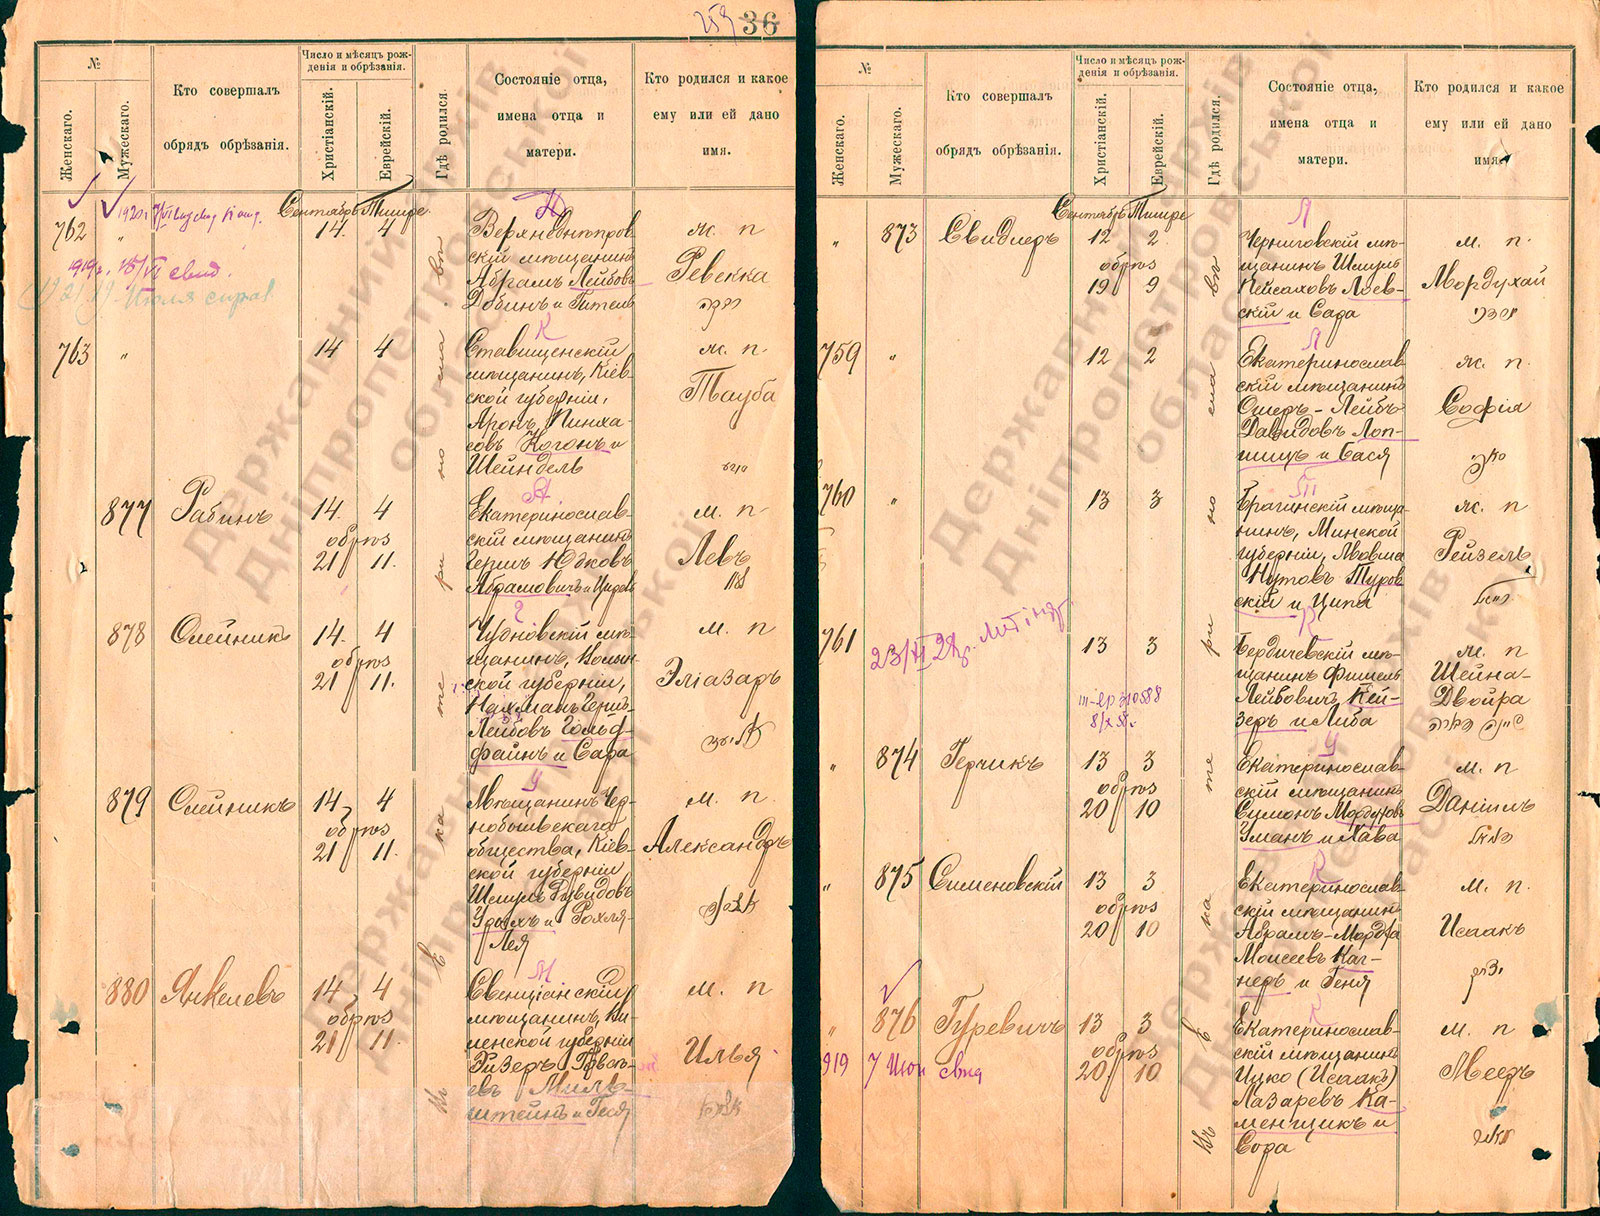 259 36
№
Женскаго.
Мужескаго.
Кто совершалъ
обрядъ обрѣзанія.
Число и мѣсяцъ рож-
денія и обрѣзанія.
Христіанскій.
Еврейскій.
Гдѣ родился.
Состояніе отца,
имена отца и
матери.
Кто родился и какое
ему или ей дано
имя.
Сентябрь Тишре
762 " 14 4
Верхнеднѣпров
скій мѣщанинъ
Абрамъ Лейбовъ
Добинъ и Гитель
ж. п
Ревекка
רבקה
763 " 14 4
Ставищенскій
мѣщанинъ, Кіев-
ской губерніи,
Аронъ Пинха-
совъ Когонъ и
Шейндель
ж. п
Тауба
877 Рабинъ 14 4
обрѣз
21 11.
Екатеринослав-
скій мѣщанинъ
Гершъ Юдковъ
Абрамовичъ и
м. п
Левъ
878 Олейникъ 14 4
обрѣз
21 11.
Чудновскій мѣ-
щанинъ, Волын-
ской губерніи,
Нахманъ Гершъ-
Лейбовъ Гольд-
файнъ и Сара
м. п
Эліазаръ
879 Олейникъ 14 4
обрѣз
21 11.
Мѣщанинъ Чер-
нобыльскаго
общества, Кіев-
ской губерніи
Шмуль Рувидовъ
и Рохля-
Лея
м. п.
Александръ
880 Янкелевъ 14 4
обрѣз
21 11.
Свенціанскій
мѣщанинъ, Ви-
ленской губерніи
евъ Миль-
штейнъ и Геся
м. п
Илья
въ
Екатеринославѣ
№
Женскаго.
Мужескаго.
Кто совершалъ
обрядъ обрѣзанія.
Число и мѣсяцъ рож-
денія и обрѣзанія.
Христіанскій.
Еврейскій.
Гдѣ родился.
Состояніе отца,
имена отца и
матери.
Кто родился и какое
ему или ей дано
имя.
Сентябрь Тишре
" 873 Свидлеръ 12 2
обрѣз
19 9
Черниговскій мѣ-
щанинъ Шмуль
Пейсаховъ Лоев-
скій и Сара
м. п.
Мордухай
מרדכי
759 " 12 2
Екатеринослав-
скій мѣщанинъ
Ошеръ-Лейбъ
Давидовъ Лоп-
шицъ и Бася
ж. п.
Софія
760 " 13 3
Брагинскій мѣща-
нинъ, Минской
губерніи,
Нутовъ Туров
скій и Ципа
ж. п.
Рейзель
761 13 3
Бердичевскій мѣ-
щанинъ Фишель
Лейбовичъ Кей-
зеръ и Либа
ж. п
Шейна-
Двойра
שיינה דבורה
" 874 Герчикъ 13 3
обрѣз
20 10
Екатеринослав-
скій мѣщанинъ
Симонъ Мордуховъ
Уманъ и Хава
м. п
Даніилъ
" 875 Сименовскій 13 3
обрѣз
20 10
Екатеринослав-
скій мѣщанинъ
Абрамъ-Мордха
Моисеевъ Каг-
неръ и Геня
м. п.
Исаакъ
" 876 Гуревичъ 13 3
обрѣз
20 10
919 7 Июн свид
Екатеринослав-
скій мѣщанинъ
Ицко (Исаакъ)
Лазаревъ Ка-
менщикъ и
Сора
м. п
Мееръ
מאיר
въ
Екатеринославѣ
Державний архів
Дніпропетровської
області